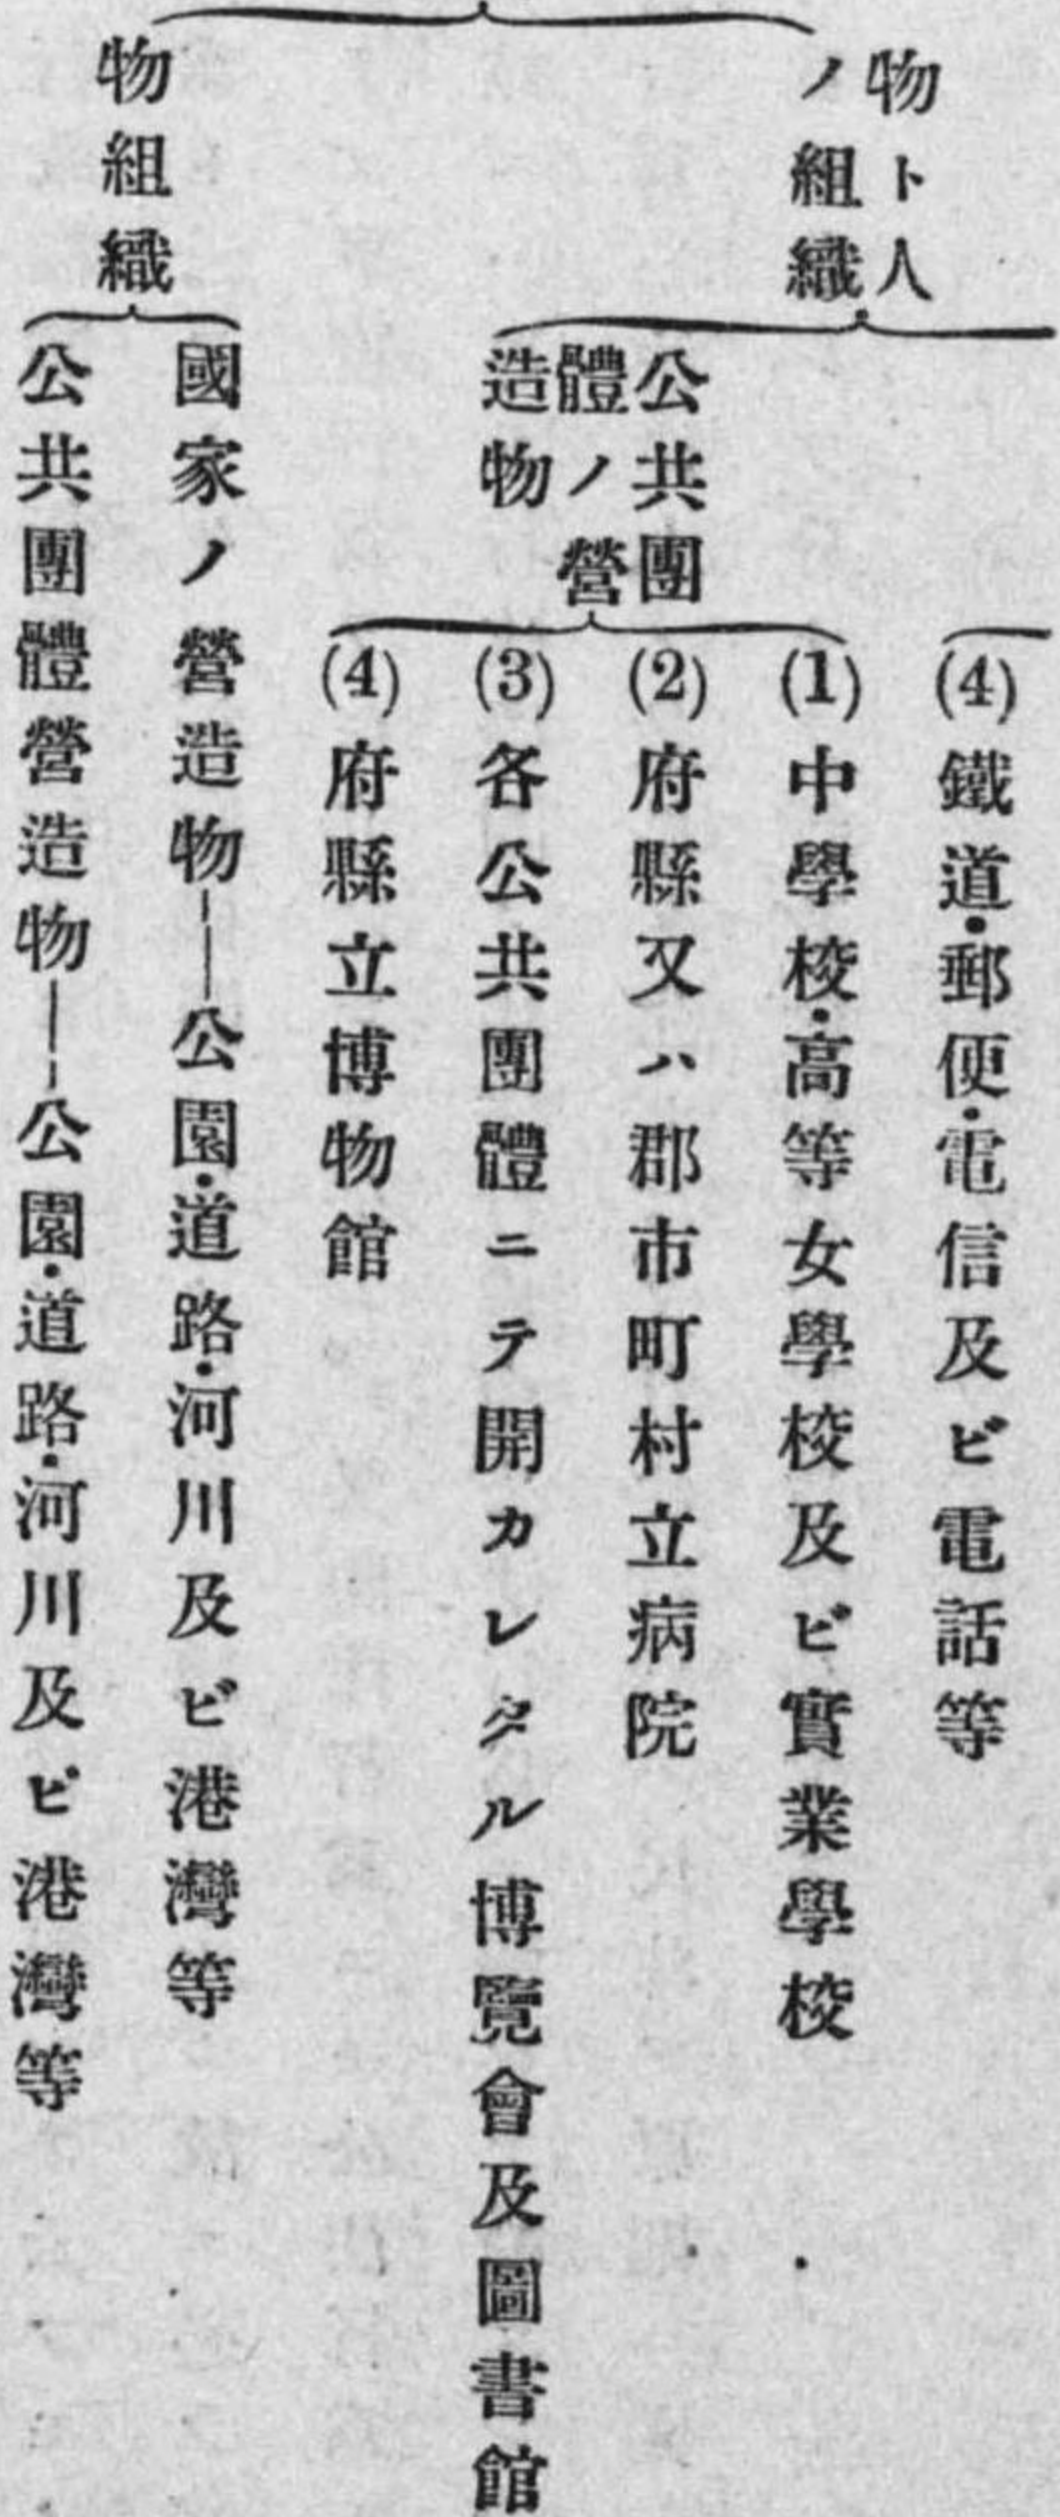 物ト人
ノ組織
(4)鐵道・郵便・電信及ビ電話等
公共團
體ノ營
造物
(1)中學校・高等女學校及ビ實業學校
(2)府縣又ハ郡市町村立病院
(3)各公共團體ニテ開カレタル博覽會及圖書館
(4)府縣立博物館
物組織
國家ノ營造物——公園・道路・河川及ビ港灣等
公共團體營造物——公園・道路・河川及ビ港灣等